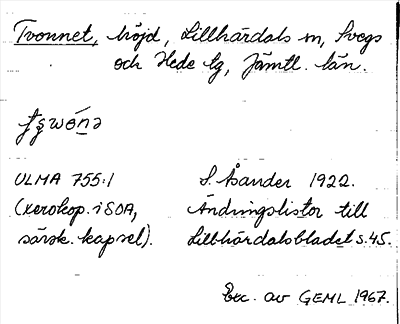 Tvonnet, höjd, Lillhärdals sn, Svegs
och Hede tg, Jämtl. län.
ULMA 755:1 S. Åsander 1922.
(xerokop. i SOA, Ändringslistor till
särsk. kapsel). Lillhärdalsbladet s. 45.
Exc. av GEML 1967.